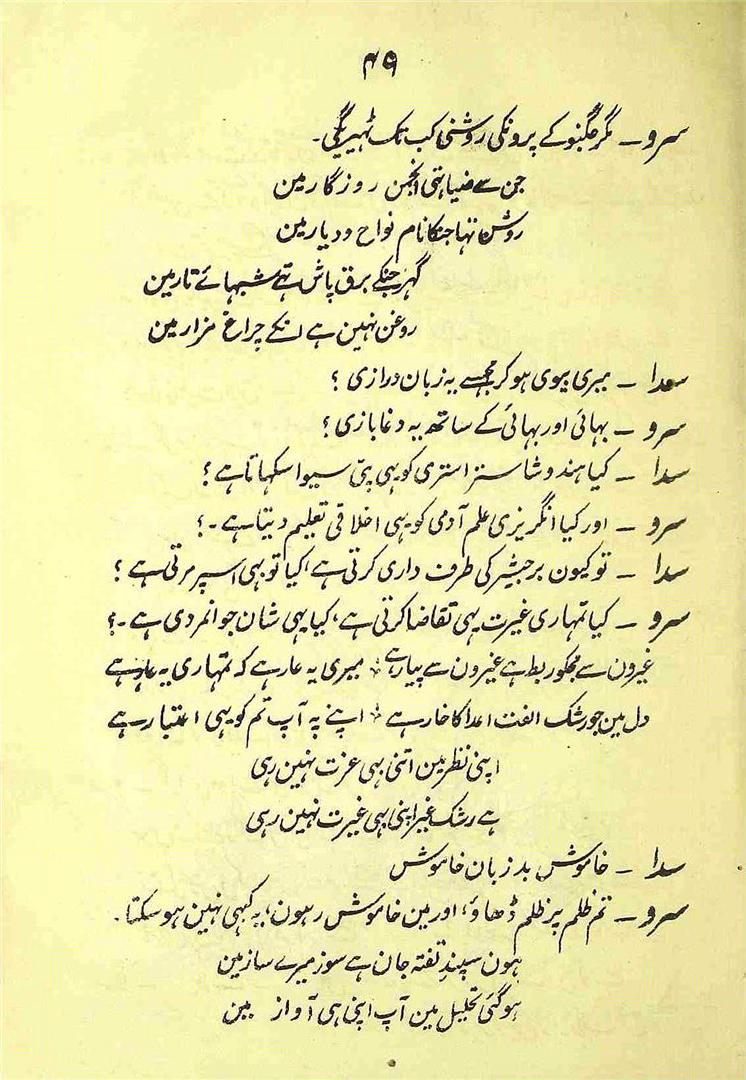 ۴۹
سرو ـ مگر جگنو کے پرونکی روشنی کب تک ٹہیریگی۔
جن سے ضیا تہی انجمن روزگار مین
روشن تہا جنکا نام نواح و دیار مین
گہر جنکے برق پاش تہے شبہائے تار مین
روغن نہین ہے انکے چراغ مزار مین
سدا ـ میری بیوی ہوکر مجہسے یہ زبان درازی ؟
سرو ـ بہائی اور بہائی کے ساتھ یہ دغابازی ؟
سدا ـ کیا ہندو شاستر استری کو یہی پتی سیوا سکہاتا ہے ؟
سرو ـ اور کیا انگریزی علم آدمی کو یہی اخلاقی تعلیم دیتا ہے ـ؟
سدا ـ تو کیون برجیشر کی طرف داری کرتی ہے، کیا تو بہی اسپر مرتی ہے ؟
سرو ـ کیا تمہاری غیرت یہی تقاضا کرتی ہے، کیا یہی شان جوانمردی ہے ـ؟
غیرون سے مجکو ربط ہے غیرون سے پیار ہے ؛ میری یہ عار ہے کہ تمہاری یہ عار ہے
دل مین جو رشک الفت اعدا کا خار ہے ؛ اپنے پہ آپ تم کو یہی اعتبار ہے
اپنی نظر مین اتنی بہی عزت نہین رہی
ہے رشک غیر اپنی بہی غیرت نہین رہی
سدا ـ خاموش بد زبان خاموش
سرو ـ تم ظلم پر ظلم ڈھاؤ، اور مین خاموش رہون، یہ کبہی نہین ہوسکتا۔
ہون سپندِ تفتہ جان ہے سوز میرے ساز مین
ہوگئی تحلیل مین آپ اپنی ہی آواز مین